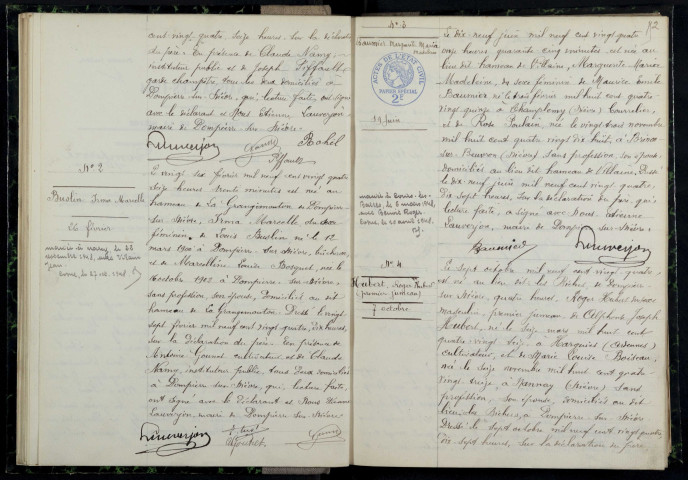 cent vingt quatre, seize heures, sur la déclaration
du père. En présence de Claude Namy,
instituteur public et de Joseph Siffault,
garde champêtre, tous les deux domiciliés à
Dompierre sur Nièvre, qui, lecture faite, ont signé
avec le déclarant et Nous Etienne Lauverjon
maire de Dompierre sur Nièvre.
Lauverjon
N° 2
Buslin Irma Marcelle
26 février
Le vingt six février mil neuf cent vingt quatre
seize heures trente minutes est née au
hameau de La Grangemouton de Dompierre
sur Nièvre, Irma Marcelle du sexe
féminin de Louis Buslin né le 12
mars 1900 à Dompierre sur Nièvre, bûcheron
et de Marcelline Louise Bosquet, née le
octobre 1902 à Dompierre sur Nièvre,
sans profession, son épouse, domiciliés au dit
hameau de La Grangemouton. Dressé le vingt
sept février mil neuf cent vingt quatre, dix heures,
sur la déclaration du père. En présence de
Antoine Gounot cultivateur, et de Claude
Namy, instituteur public, tous deux domiciliés
à Dompierre sur Nièvre, qui, lecture faite,
ont signé avec le déclarant et Nous Etienne
Lauverjon, maire de Dompierre sur Nièvre.
Lauverjon
82
N° 3
Baumier Marguerite Marie
Madeleine
ACTES DE L'ETAT CIVIL
PAPIER SPÉCIAL
2F
19 juin
Le dix neuf juin mil neuf cent vingt quatre
onze heures quarante cinq minutes, est née au
lieu dit hameau de Villaine, Marguerite Marie
Madeleine, du sexe féminin de Maurice Emile
Baumier né le février mil huit cent quatre
vingt quinze à Champlemy (Nièvre) Cantilier,
et de Rose Poulain, née le vingt trois novembre
mil huit cent quatre vingt dix huit, à Brinon
sur Beuvron (Nièvre) sans profession, son épouse
domiciliés au lieu dit hameau de Villaine. Dressé
le dix neuf juin mil neuf cent vingt quatre,
dix sept heures, sur la déclaration du père, qui,
lecture faite, a signé avec Nous Etienne
Lauverjon, maire de Dompierre sur Nièvre.
Baumier Lauverjon
N° 4
Hubert, Roger Hubert
(premier jumeau)
7 octobre
Le sept octobre mil neuf cent vingt quatre,
est né au lieu dit les Biches, de Dompierre
sur Nièvre, quatre heures, Roger Hubert du sexe
masculin, premier jumeau de Alphonse Joseph
Hubert, né le seize mars mil huit cent
quatre vingt seize à Hargnies (Ardennes)
cultivateur, et de Marie Louise Boiseau,
née le seize novembre mil huit cent quatre
vingt treize, à Narnay (Nièvre) sans
profession, son épouse, domiciliés au dit
lieu des Biches, à Dompierre sur Nièvre
Dressé le sept octobre mil neuf cent vingt quatre
dix sept heures, sur la déclaration du père,